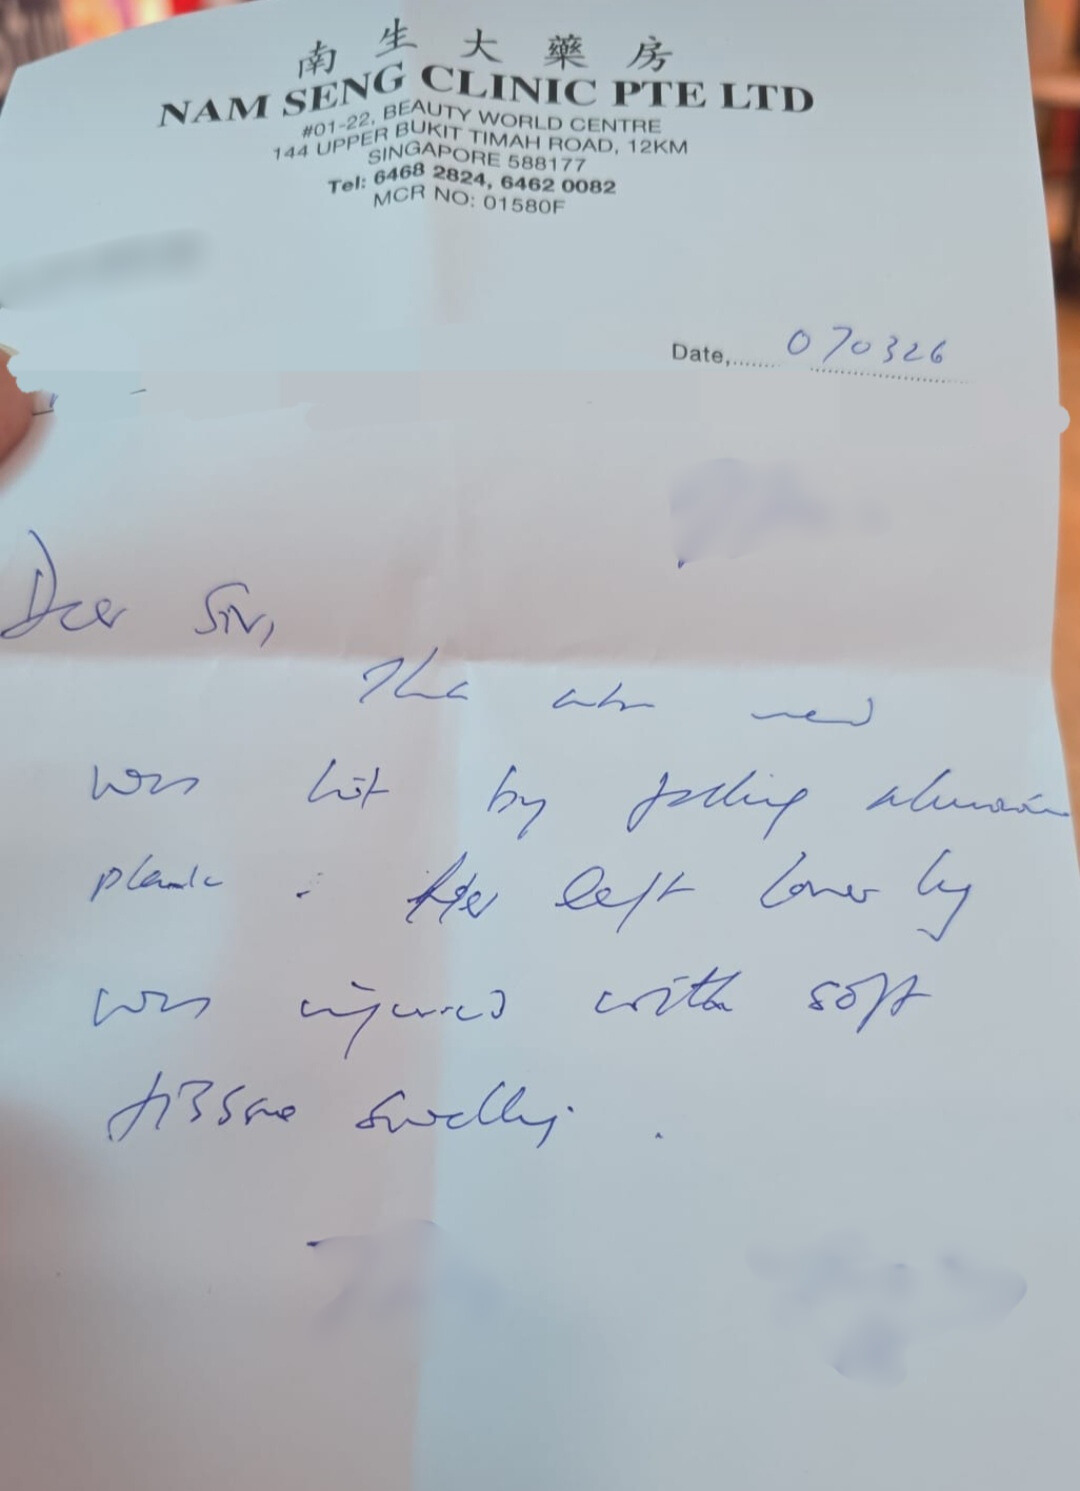 南生大藥房
NAM SENG CLINIC PTE LTD
#01-22, BEAUTY WORLD CENTRE
144 UPPER BUKIT TIMAH ROAD, 12KM
SINGAPORE 588177
Tel: 6468 2824, 6462 0082
MCR NO: 01580F
Date, 070326
Dear Sir,
The
was hit by falling
plank. Her left lower leg
was injured with soft
tissue swelling.